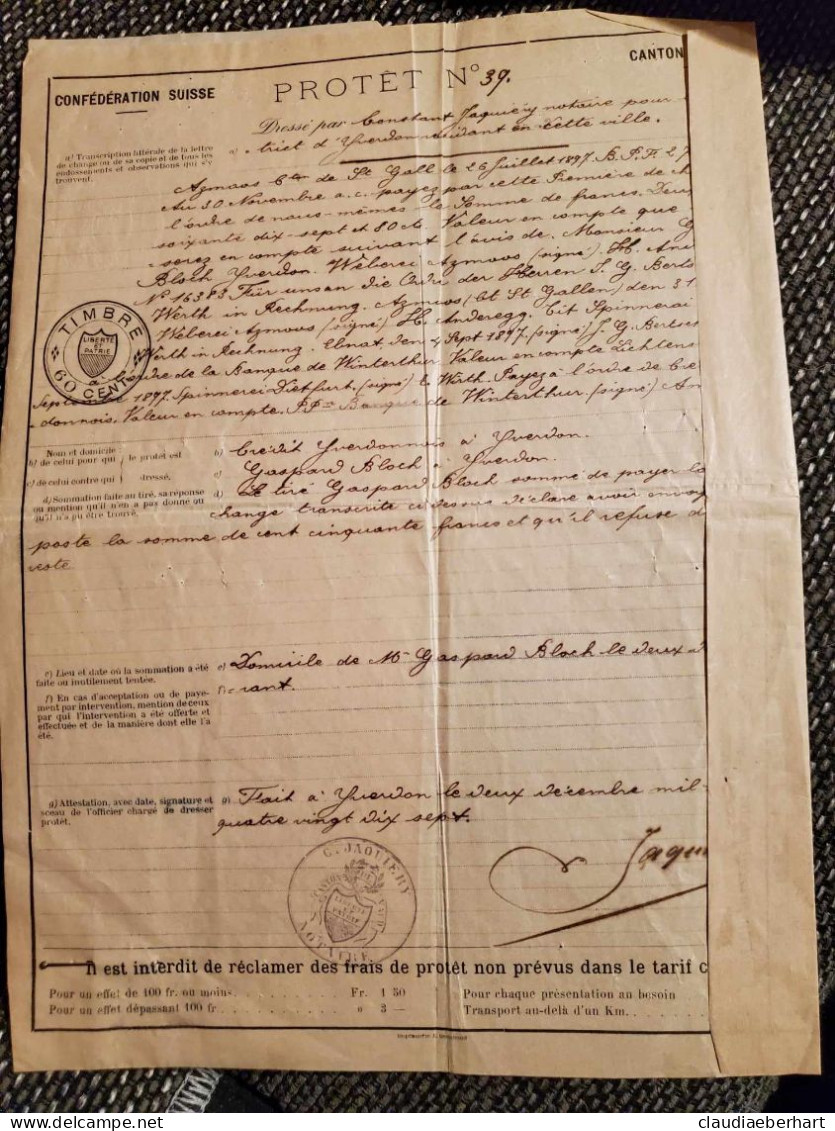 CONFÉDÉRATION SUISSE
PROTÊT No 39.
CANTON
Dressé par Constant Jaquiéry notaire pour
trict d'Yverdon résidant en cette ville.
a) Transcription littérale de la lettre
de change ou de sa copie et de tous les
endossements et observations qui s'y
trouvent.
Azmoos Cton de St Gall le 26 Juillet 1897. B. P. F. 27
Au 30 Novembre a. c. payez par cette Première de ch
l'ordre de nous-mêmes la Somme de francs. Deux
soixante dix-sept et 80 cts Valeur en compte que
serez en compte suivant l'avis de. Monsieur G
Bloch Yverdon. Weberei Azmoos (signé). H. Ande
No 16383 Für uns an die Ordre der Herren J. G. Berts
Werth in Rechnung. Azmoos (Ct St Gallen) den 31
Weberei Azmoos (signé) H. Anderegg. Cit Spinnerei
Werth in Rechnung. Ebnat den 4 Sept 1897. (signé) J. G. Bertsc
ordre de la Banque de Winterthur. Valeur en compte Lichtens
Septembre 1897. Spinnerei Dietfurt. (signé) Wirth. Payez à l'ordre de Cré
donnois. Valeur en compte. Banque de Winterthur. (signé) An
TIMBRE
LIBERTÉ
ET
PATRIE
à
60 CENT.
Nom et domicile:
b) de celui pour qui le protêt est
c) de celui contre qui dressé.
b) Crédit Yverdonnois à Yverdon.
c) Gaspard Bloch à Yverdon.
d) Sommation faite au tiré, sa réponse
ou mention qu'il n'en a pas donné ou
qu'il n'a pu être trouvé.
d) Le tiré Gaspard Bloch sommé de payer la
change transcrite ci dessus déclare avoir envoy
poste la somme de cent cinquante francs et qu'il refuse d
reste
e) Lieu et date où la sommation a été
faite ou inutilement tentée.
e) Domicile de Mr Gaspard Bloch le deux d
courant.
f) En cas d'acceptation ou de paye-
ment par intervention, mention de ceux
par qui l'intervention a été offerte et
effectuée et de la manière dont elle l'a
été.
g) Attestation, avec date, signature et
sceau de l'officier chargé de dresser
protêt.
g) Fait à Yverdon le deux décembre mil
quatre vingt dix sept.
Jaqui
C. JAQUIERY
CANTON DE VAUD
LIBERTÉ
ET
PATRIE
NOTAIRE
Il est interdit de réclamer des frais de protêt non prévus dans le tarif c
Pour un effet de 100 fr. ou moins Fr. 1 50
Pour un effet dépassant 100 fr » 3 —
Pour chaque présentation au besoin
Transport au-delà d'un Km.
claudiaeberhart